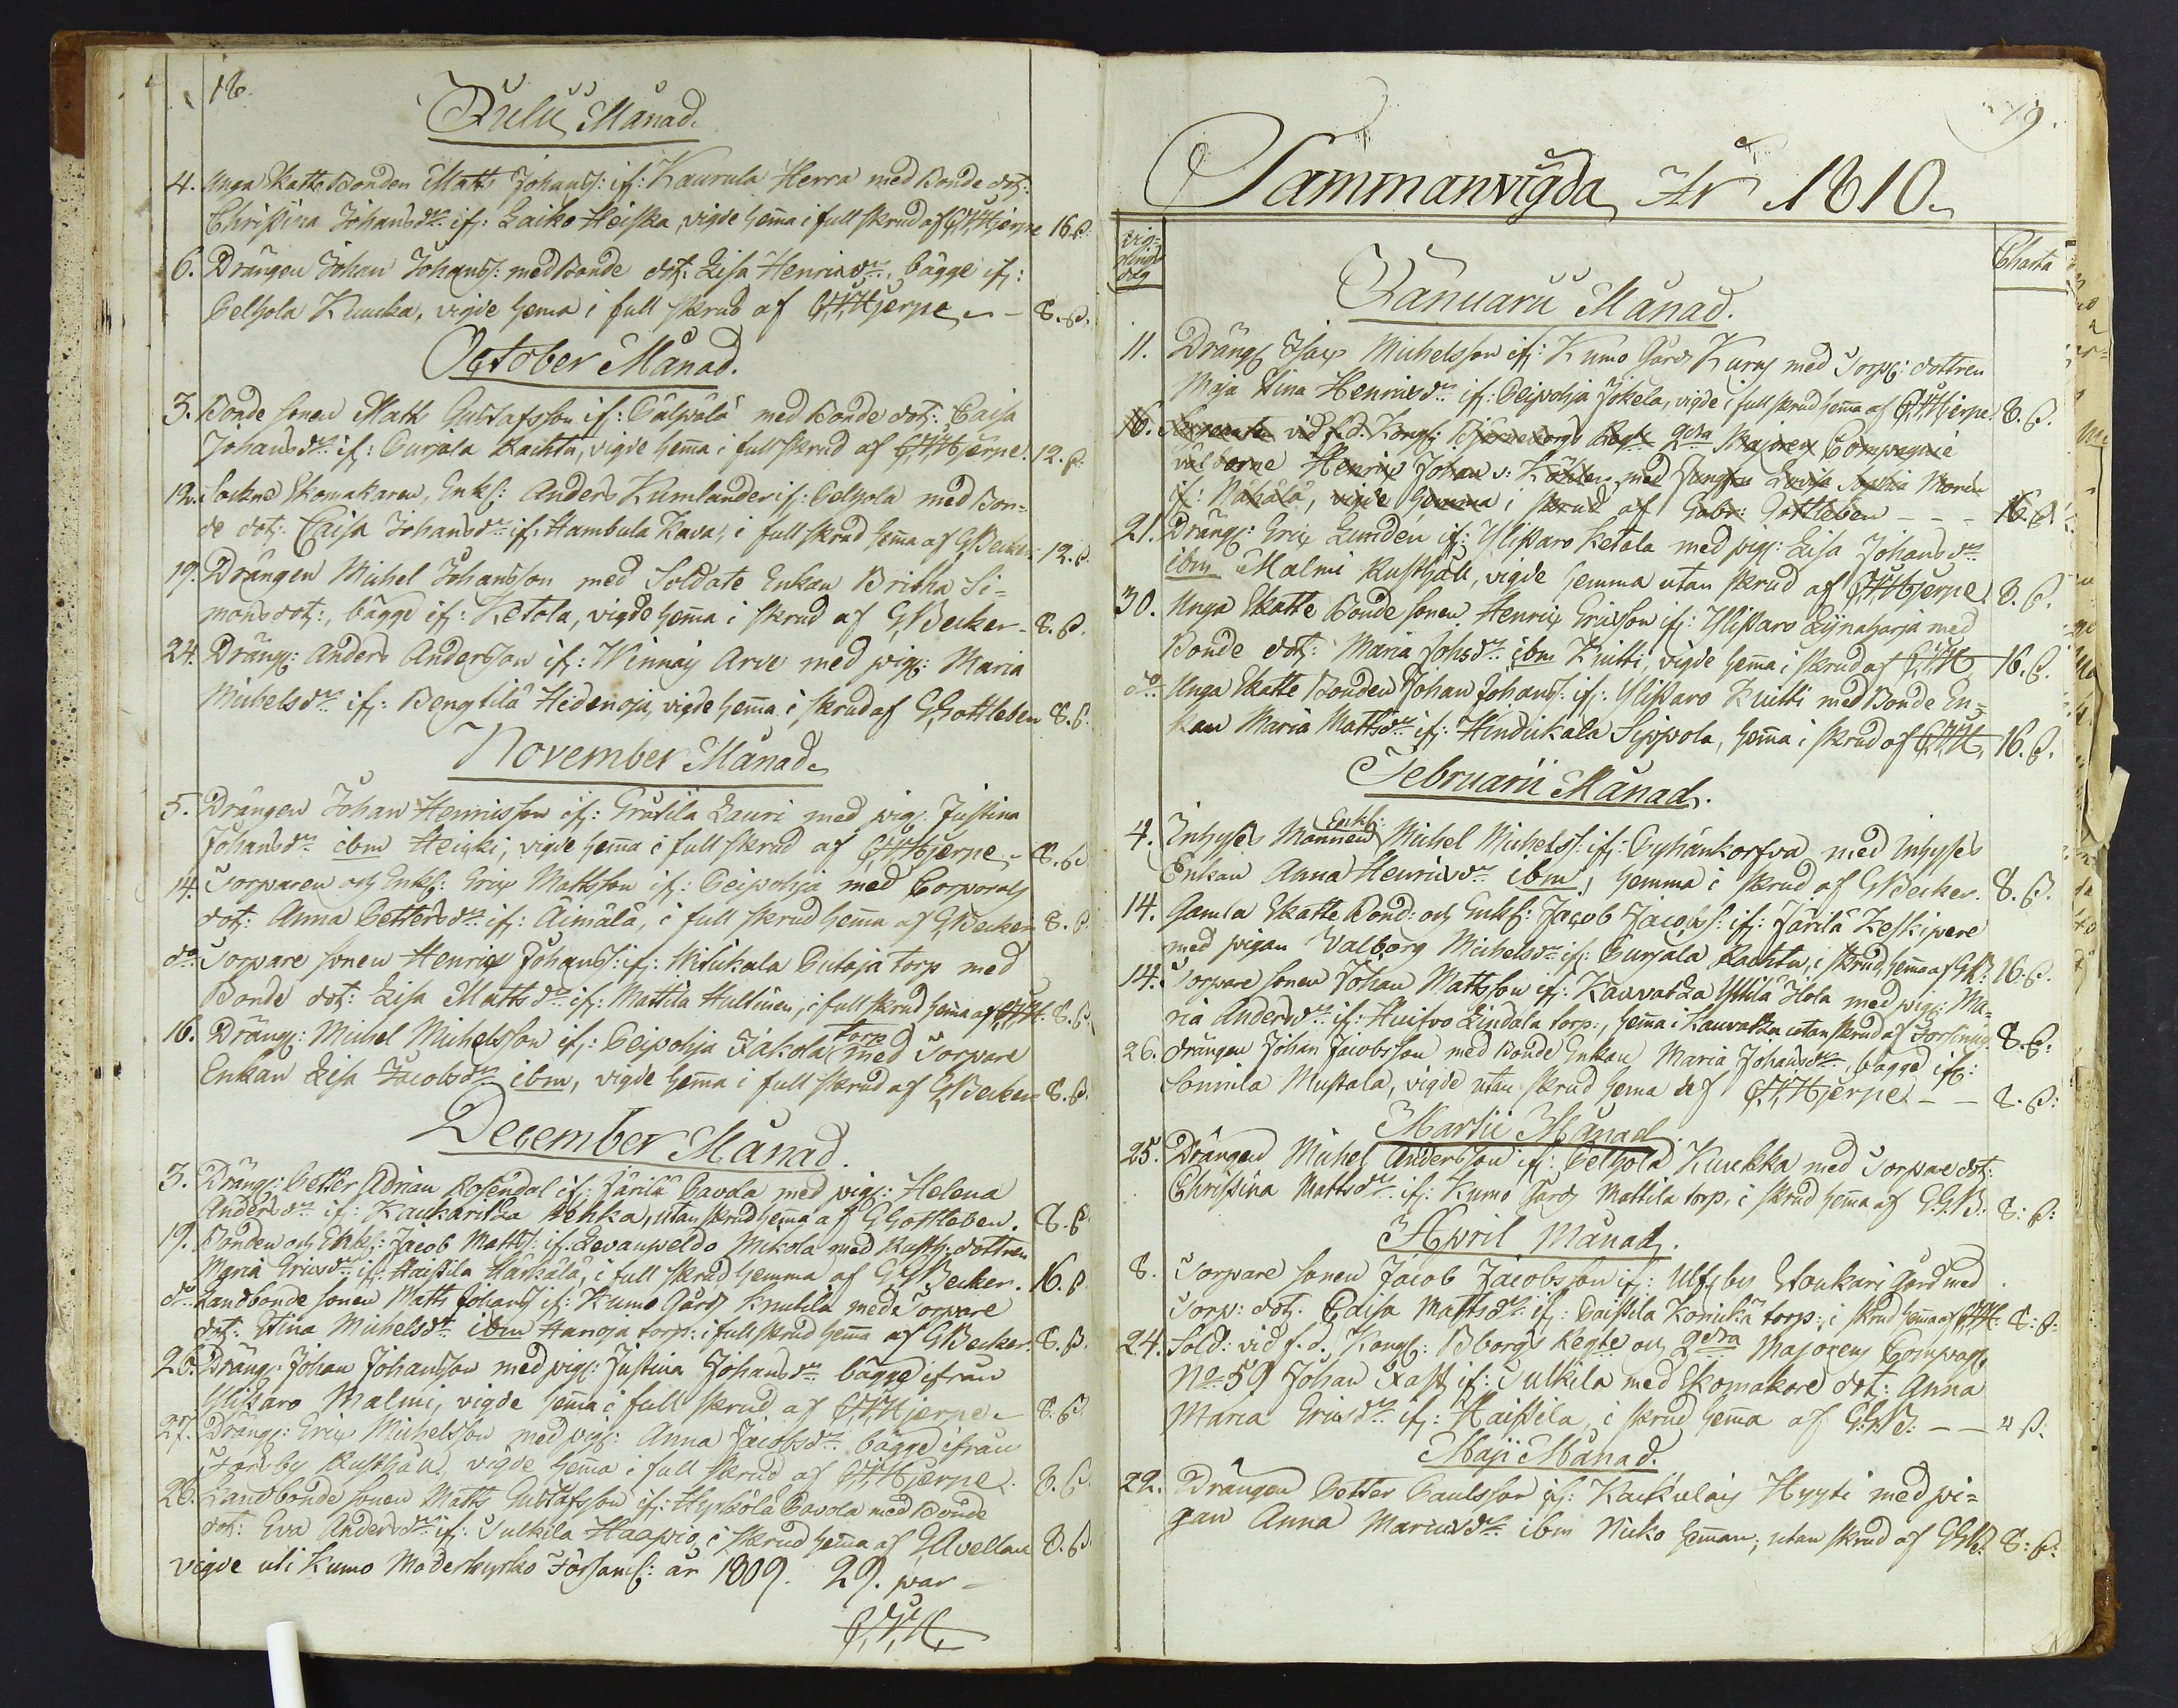 18.
Julii Månad.
4. Unga Skatte Bonden Matts Johanss: if: Kaurula Herra med Bonde dot:
Christina Johansdr: if: Laiko Heiska, vigde hema i full skrud af Hjerpe 16 ß:
6. Drängen Johan Johanss: med Bonde dot: Lisa Henricsdr: bägge if:
Pelhola Kuucka, vigde hema i full skrud af Hjerpe - 8. ß.
October Månad.
3. Bonde sonen Matts Gustafsson if: med Bonde dot: Caisa
Johansdr: if: Pursala Rachtu, vigde hema i full skrud af Hjerpe. 12. ß:
12. Sockne Skomakaren, Enkl: Anders Kumlander if: Pelhola med Bon-
de dot: Caisa Johansdr: if: Hambula Kava, i full skrud hema af GBecker. 12. ß.
19. Drängen Michel Johansson med Soldate Enkan Britha Si-
monsdot:, bägge if: Ketola, vigde hema i skrud af GBecker - 8. ß.
24. Dräng: Anders Andersson if: Winnais Arve med pig: Maria
Michelsdr: if: Bengtilä Hidenoja, vigde hema i skrud af GGottleben 8. ß.
November Månad.
5. Drängen Johan Henricsson if: Lauri med pig: Justina
Johansdr: ibm Heicki, vigde hema i full skrud af Hjerpe - 8. ß.
14. Torparen och Enkl: Eric Mattsson if: Peipohja med Corporals
dot: Anna Pettersdr: if: Äimälä, i full skrud hema af GBecker 8. ß.
do Torpare sonen Henric Johanss: if: Putaja torp med
Bonde dot: Lisa Mattsdr: if: Mattila Hultinen, i full skrud hema af 8. ß.
16. Dräng: Michel Michelsson if: Peipohja Jäkola torp med Torpare
Enkan Lisa Jacobsdr: ibm, vigde hema i full skrud af GBecker 8. ß.
December Månad.
3. Dräng: Petter Adrian Rosendal if: Järilä Pavola med pig: Helena
Andersdr: if: Kaukaritza utan skrud hema af GGottleben. 8. ß.
19. Bonden och Enkl: Jacob Matts: if: Levanpeldo Mikola med Rusth: dottren
Maria Ericsdr: if: Haistila Härkälä, i full skrud hemma af GBecker. 16. ß.
do Landbonde sonen Matts Johanss if: Kumo Gårds Knutila med Torpare
dot: Stina Michelsdr: ibm Hanoja torp: i full skrud hema af GBecker. 8. ß.
26. Dräng: Johan Johansson med pig: Justina Johansdr: bägge ifrån
Ylistaro Malmi, vigde hema i full skrud af Hjerpe - 8. ß.
27. Dräng: Eric Michelsson med pig: Anna Jacobsdr: bägge ifrån
Forsby Rusthåll, vigde hema i full skrud af Hjerpe. 8. ß.
28. Landbonde sonen Matts Gustafsson if: Pavola med Bonde
dot: Eva Andersdr: if: Tulkila Haapio, i skrud hema af GAvellan 8. ß.
vigde uti Kumo Moderkyrko Församl: år 1809. 29. par -
19.
Sammanvigda År 1810.
Vig-
nings
dag
Charta
Januarii Månad.
11. Dräng Isac Michelsson if: Kumo Gårds Kuras med Torp: dottren
Maja Stina Henricsdr: if: Peipohja Jokela, vigde i full skrud hema af Hjerpe. 8. ß.
16. vid f.d. Kongl: Björneborgs Regte 2dra Majorens Compagnie
välborne Henric Johan v: Köhler, med Jungfru Lovisa Maria
if: Näkälä, vigde hemma i skrud af Gabr: Gottleben - - - 16. ß.
21. Dräng: Eric Lundén if: Ylistaro Ketola med pig: Lisa Johansdr:
ibm Malmi Rusthåll, vigde hemma utan skrud af Hjerpe 8. ß.
30. Unga Skatte Bonde sonen Henric Ericsson if: Ylistaro Lijnaharja med
Bonde dot: Maria Johsdr: ibm Kuitti, vigde hema i skrud af 16. ß.
do Unga Skatte Bonden Johan Johanss: if: Ylistaro Kuitti med Bonde En-
kan Maria Mattsdr: if: Hindikala Sippola, hema i skrud af 16. ß.
Februarii Månad.
4. Inhyses Mannen Enkl: Michel Michels: if: Pyhänkorfva med Inhyses
Enkan Anna Henricsdr: ibm, hemma i skrud af GBecker. 8. ß.
14. Gamla Skatte Bond: och Enkl: Jacob Jacobs: if: Järilä Keskipere
med pigan Valborg Michelsdr: if: Pursala Rachtu, i skrud hema af GB: 16. ß.
14. Torpare sonen Johan Mattsson if: Kauvatza Yttilä Hola med pig: Ma-
ria Andersdr: if: Huifvo Lindala torp:, hema i Kauvatza utan skrud af Forsenius 8. ß:
26. drängen Johan Jacobsson med Bonde Enkan Maria Johansdr: bägge if:
Sonnila Mustala, vigde utan skrud hema af Hjerpe - - 8. ß:
Martii Månad.
25. Drängen Michel Andersson if: Pelhola Kuukka med Torpare dot:
Christina Mattsdr: if: Kumo Gårds Mattila torp, i skrud hema af G.G.B. 8: ß:
April Månad.
8. Torpare sonen Jacob Jacobsson if: Ulfsby Storkari Gård med
Torp: dot: Caisa Mattsdr: if: torp:, i skrud hema af 8: ß:
24. Sold: vid f.d. Kongl: Bborgs Regte och 2dra Majorens Compag
No 59 Johan Rask if: Tulkila med Skomakare dot: Anna
Maria Ericsdr: if: Haistila, i skrud hema af G:G:B: - - " ß:
Maji Månad.
22. Drängen Petter Paulsson if: Kackulais Hyyti med pi-
gan Anna ibm Niko heman, utan skrud af GGB: 8: ß: